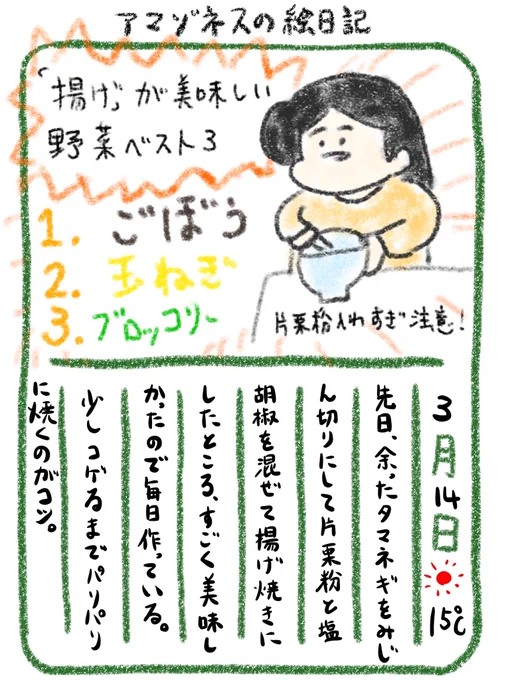 アマゾネスの絵日記
「揚げ」が美味しい
野菜ベスト3
1. ごぼう
2. 玉ねぎ
3. ブロッコリー
片栗粉入れすぎ注意!
3月14日 15℃
先日、余ったタマネギをみじ
ん切りにして片栗粉と塩
胡椒を混ぜて揚げ焼きに
したところ、すごく美味し
かったので毎日作っている。
少しコゲるまでパリパリ
に焼くのがコツ。